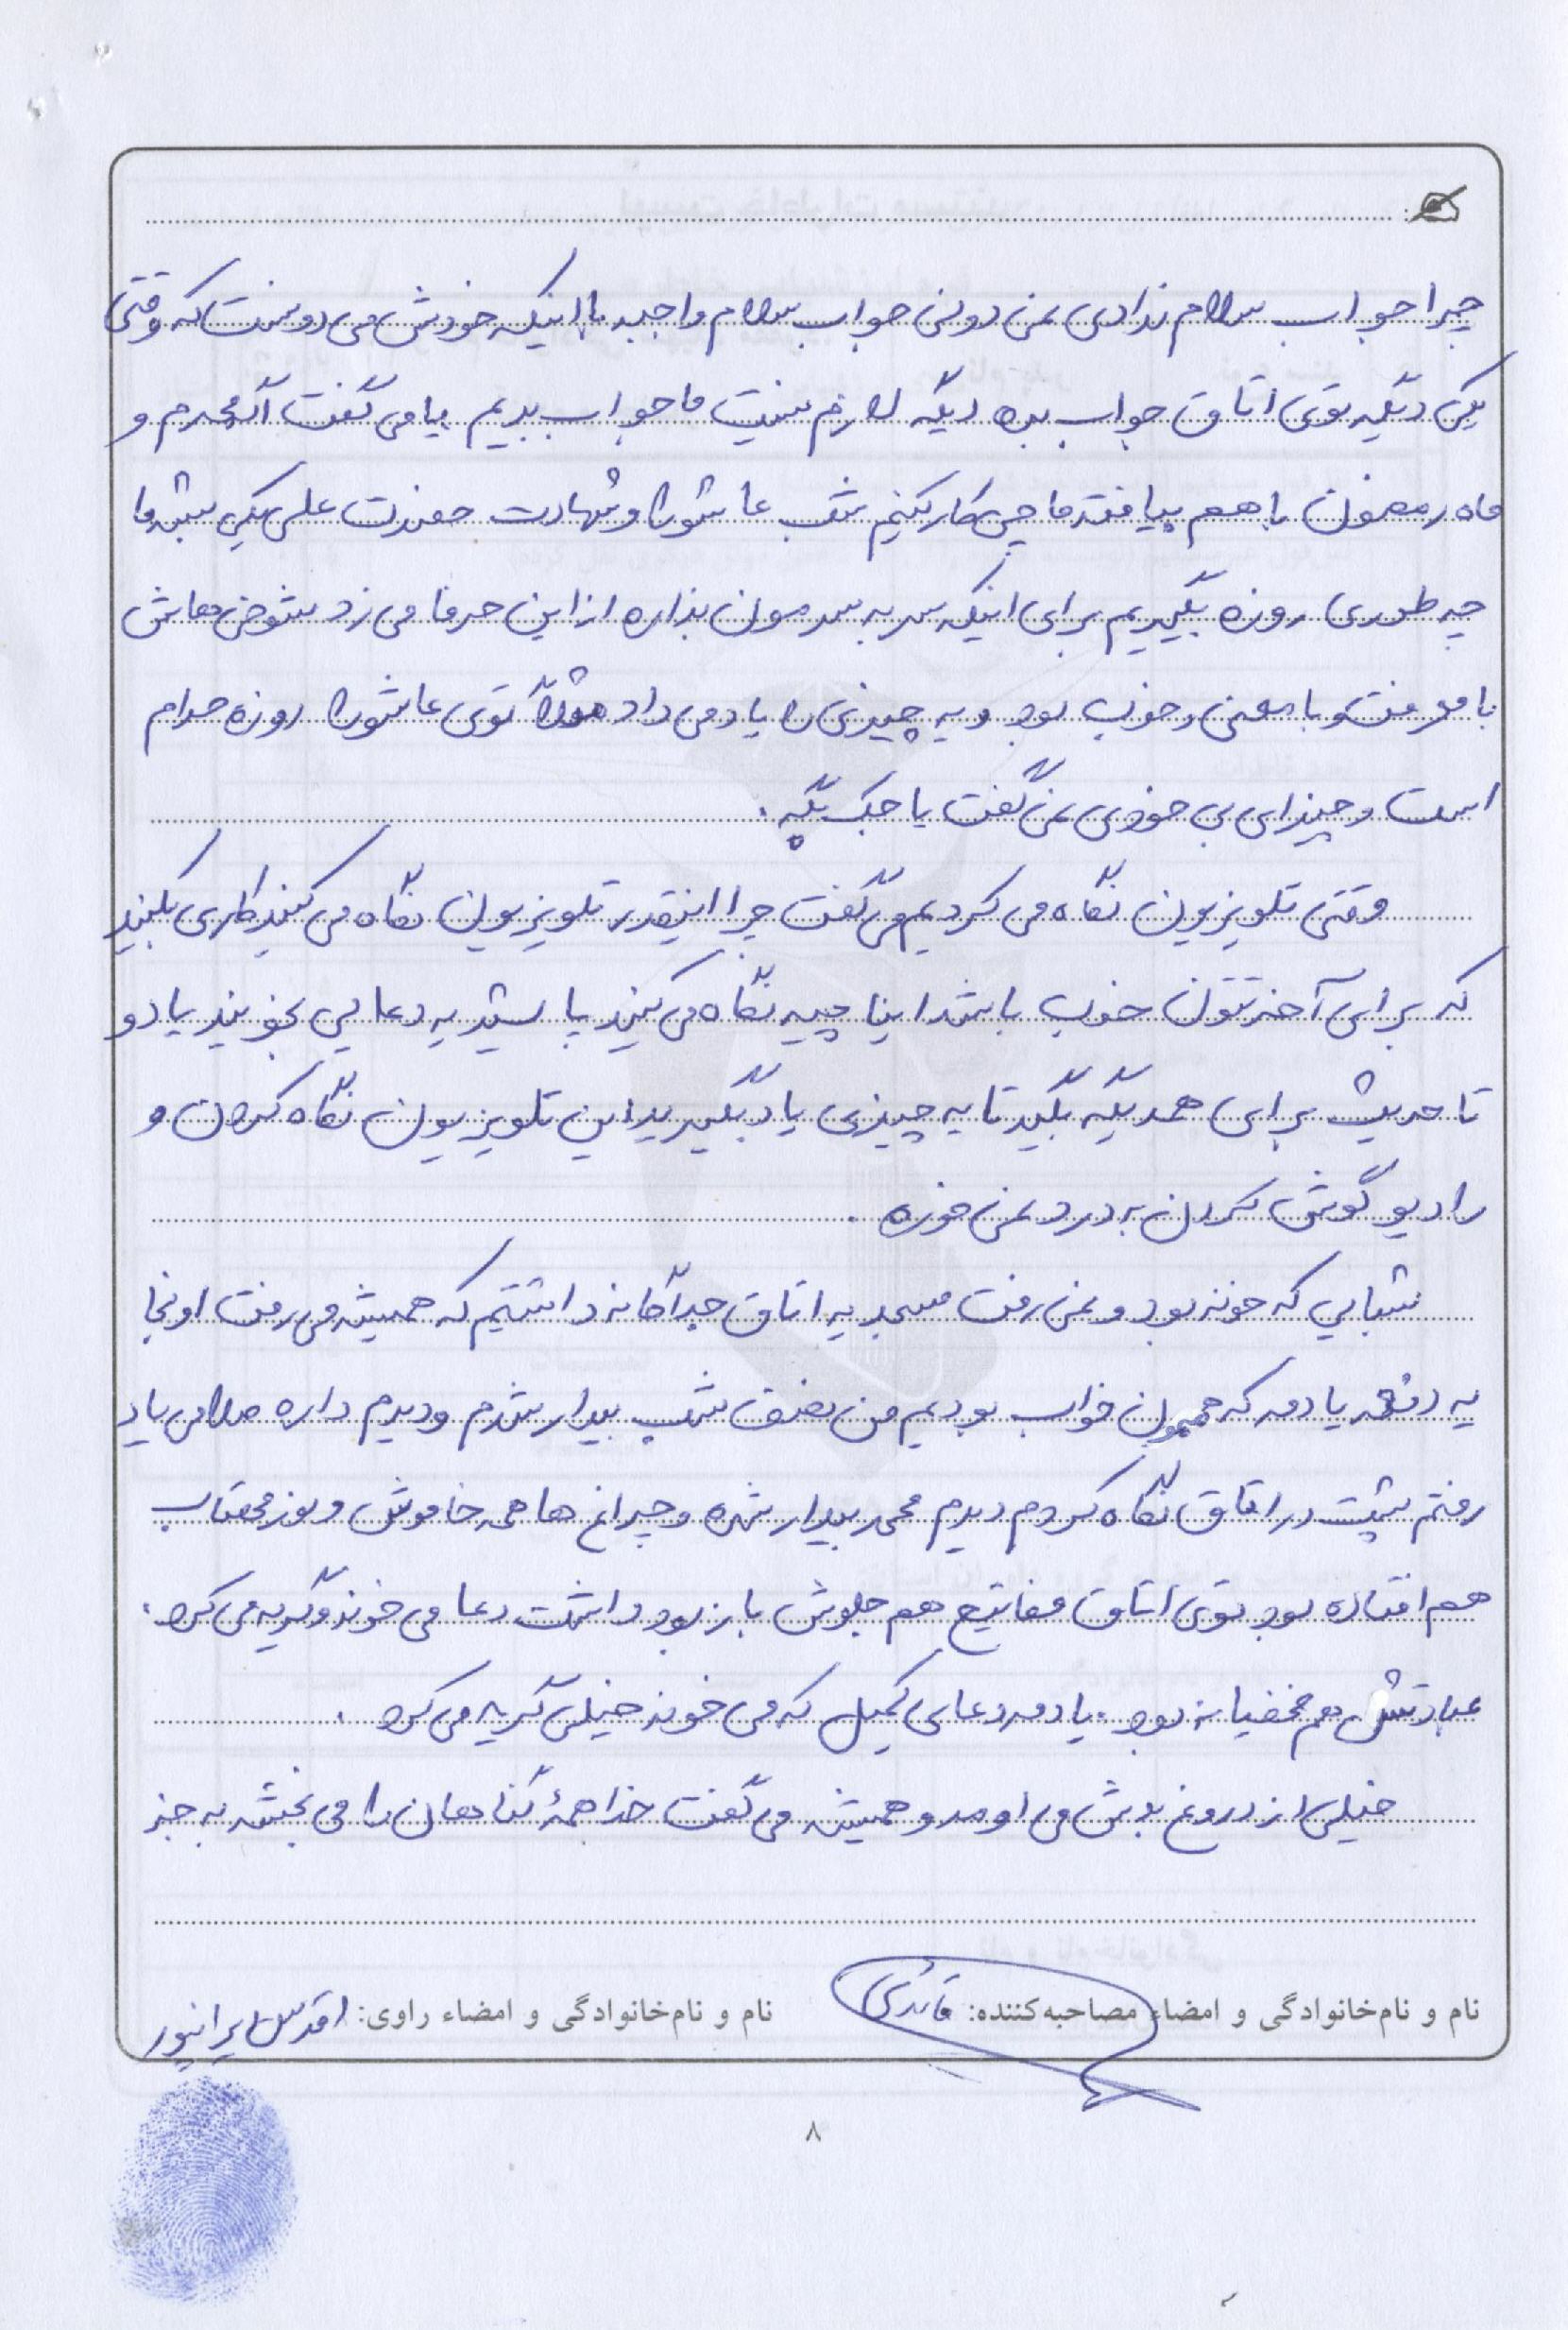 چرا جواب سلام ندادی نمی دونی جواب سلام واجبه با اینکه خودش می دونست که وقتی
یکی دیگه توی اتاق جواب بده دیگه لازم نیست ما جواب بدیم یا می گفت اگه محرم و
ماه رمضون با هم بیافته ما چی کار کنیم شب عاشورا و شهادت حضرت علی یکی بشه ما
چه طوری روزه بگیریم برای اینکه سر به سرمون بذاره از این حرفا می زد شوخی هاش
با معرفت و با معنی و خوب بود و یه چیزی را یاد می داد مثلاً توی عاشورا روزه حرام
است و چیزای بی خودی نمی گفت یا جک بگه .
وقتی تلویزیون نگاه می کردیم می گفت چرا اینقدر تلویزیون نگاه می کنید کاری بکنید
که برای آخرتتون خوب باشد اینا چیه نگاه می کنید پاشید یه دعایی بخونید یا دو
تا حدیث برای همدیگه بگید تا یه چیزی یاد بگیرید این تلویزیون نگاه کردن و
رادیو گوش کردن به درد نمی خوره .
شبایی که خونه بود و نمی رفت مسجد یه اتاق جداگانه داشتیم که همیشه می رفت اونجا
یه دفعه یادمه که هممون خواب بودیم من نصف شب بیدار شدم و دیدم داره صدایی یاد
رفتم پشت در اتاق نگاه کردم دیدم محمد بیدار شده و چراغ ها همه خاموش و نور مهتاب
هم افتاده بود توی اتاق مفاتیح هم جلوش باز بود داشت دعا می خوند و گریه می کرد .
عبادتش هم مخفیانه بود . یادمه دعای کمیل که می خوند خیلی گریه می کرد .
خیلی از دروغ بدش می اومد و همیشه می گفت خدا همهٔ گناهان را می بخشه به جز
نام و نام‌خانوادگی و امضاء مصاحبه‌کننده: قائدی نام و نام‌خانوادگی و امضاء راوی: اقدس ایرانپور
۸